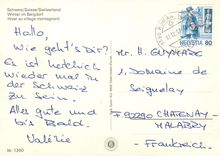 Schweiz/Suisse/Switzerland
Winter im Bergdorf
Hiver au village montagnard
Hallo,
Wie geht's Dir?
Es ist herrlich
wieder mal in
der Schweiz
zu sein.
Alles gute und
bis Bald.
Valérie
Nr. 1390
HELVETIA 80
Mr. H. GUYMARE
1. Domaine de
Seiguelay
F 92290 CHATENAY-
MALABRY
Frankreich.